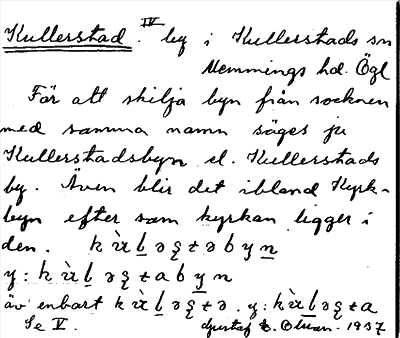 Kullerstad. IV by i Kullerstads sn
Memmings hd. Ögl
För att skilja byn från socknen
med samma namn säges ju
Kullerstadsbyn el. Kullerstads
by. Även blir det ibland Kyrk-
byn efter som kyrkan ligger i
den.
y:
äv enbart y:
Se V. Gustaf E. Olsson. 1937